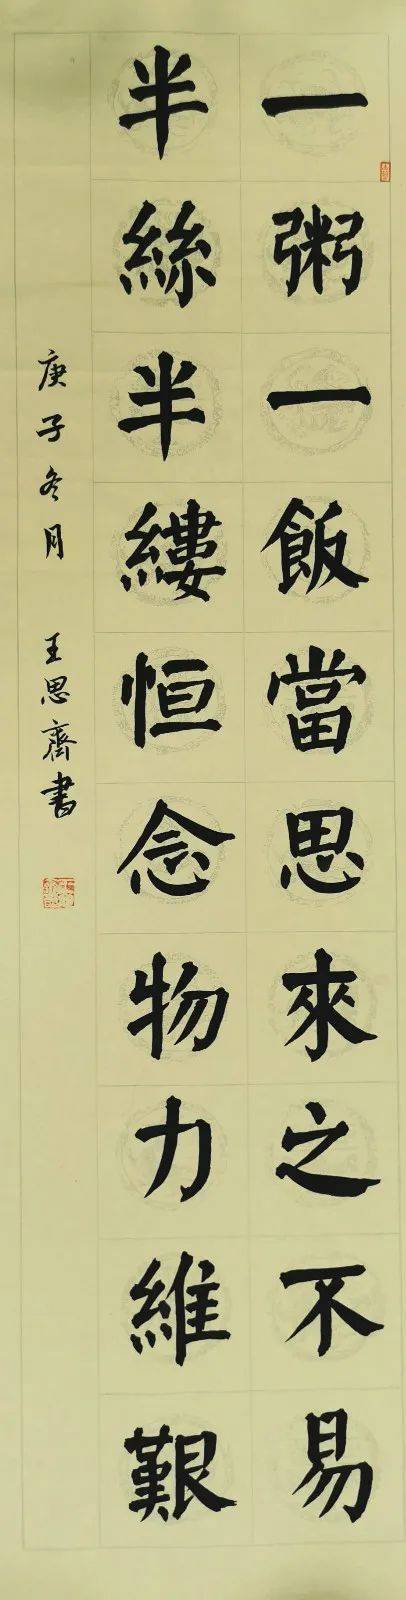 一粥一飯當思來之不易
半絲半縷恒念物力維艱
庚子冬月 王思齊書